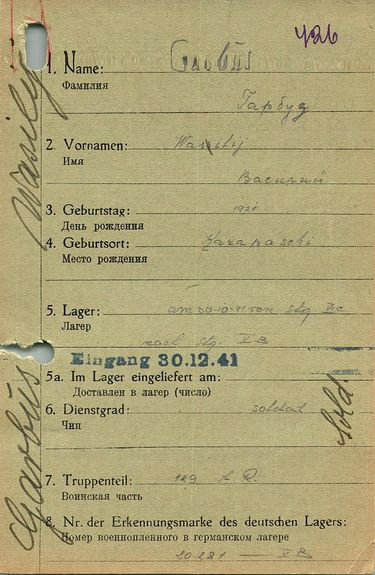 426
1. Name: Garbus
Фамилия
Гарбуз
2. Vornamen: Wassilij
Имя
Василий
3. Geburtstag: 1921
День рождения
4. Geburtsort:
Место рождения
5. Lager: am 30-10-41 von Stg
Лагер
nach Stg. VB
Eingang 30.12.41
5a. Im Lager eingeliefert am:
Доставлен в лагер (число)
6. Dienstgrad: soldat
Чин
7. Truppenteil: 129
Воинская часть
8. Nr. der Erkennungsmarke des deutschen Lagers:
Номер военнопленного в германском лагере
10281 — VB
Garbus Wasilij
Sold